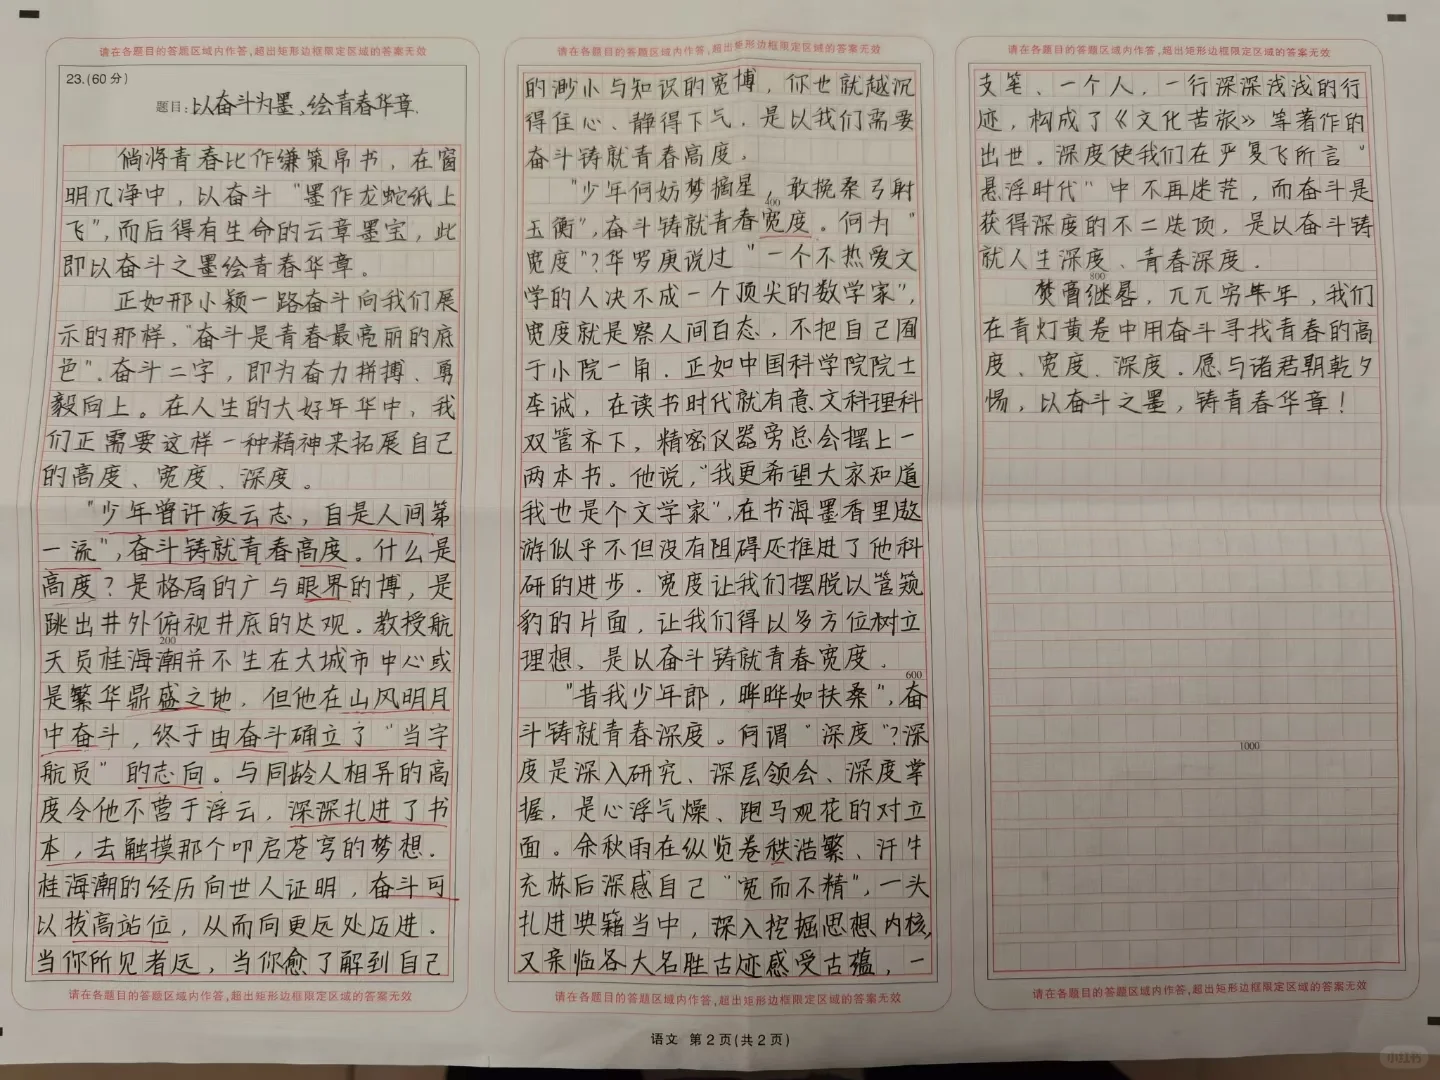 请在各题目的答题区域内作答,超出矩形边框限定区域的答案无效
23.(60分)
题目:以奋斗为墨、绘青春华章.
倘将青春比作缣策帛书，在窗
明几净中，以奋斗“墨作龙蛇纸上
飞”,而后得有生命的云章墨宝，此
即以奋斗之墨绘青春华章。
正如邢小颖一路奋斗向我们展
示的那样，“奋斗是青春最亮丽的底
色”.奋斗二字，即为奋力拼搏、勇
毅向上。在人生的大好年华中，我
们正需要这样一种精神来拓展自己
的高度、宽度、深度。
“少年曾许凌云志，自是人间第
一流”,奋斗铸就青春高度。什么是
高度？是格局的广与眼界的博，是
跳出井外俯视井底的达观。教授航
200
天员桂海潮并不生在大城市中心或
是繁华鼎盛之地，但他在山风明月
中奋斗，终于由奋斗确立了“当宇
航员”的志向。与同龄人相异的高
度令他不营于浮云，深深扎进了书
本，去触摸那个叩启苍穹的梦想.
桂海潮的经历向世人证明，奋斗可
以拔高站位，从而向更远处历进.
当你所见者远，当你愈了解到自己
请在各题目的答题区域内作答,超出矩形边框限定区域的答案无效
请在各题目的答题区域内作答,超出矩形边框限定区域的答案无效
的渺小与知识的宽博，你也就越沉
得住心、静得下气.是以我们需要
奋斗铸就青春高度.
“少年何妨梦摘星，敢挽桑弓射
400
玉衡”,奋斗铸就青春宽度。何为“
宽度”?华罗庚说过“一个不热爱文
学的人决不成一个顶尖的数学家”,
宽度就是察人间百态，不把自己囿
于小院一角.正如中国科学院院士
李诚，在读书时代就有意文科理科
双管齐下，精密仪器旁总会摆上一
两本书。他说，“我更希望大家知道
我也是个文学家”,在书海墨香里遨
游似乎不但没有阻碍还推进了他科
研的进步.宽度让我们摆脱以管窥
豹的片面，让我们得以多方位树立
理想、是以奋斗铸就青春宽度.
600
“昔我少年郎，晔晔如扶桑”,奋
斗铸就青春深度。何谓“深度”?深
度是深入研究、深层领会、深度掌
握，是心浮气燥、跑马观花的对立
面。余秋雨在纵览卷秩浩繁、汗牛
充栋后深感自己“宽而不精”,一头
扎进典籍当中，深入挖掘思想内核,
又亲临各大名胜古迹感受古蕴，一
请在各题目的答题区域内作答,超出矩形边框限定区域的答案无效
语文 第2页(共2页)
请在各题目的答题区域内作答,超出矩形边框限定区域的答案无效
支笔、一个人，一行深深浅浅的行
迹，构成了《文化苦旅》等著作的
出世.深度使我们在严复飞所言“
悬浮时代”中不再迷茫，而奋斗是
获得深度的不二选项，是以奋斗铸
就人生深度、青春深度.
800
焚膏继晷，兀兀穷年，我们
在青灯黄卷中用奋斗寻找青春的高
度、宽度、深度。愿与诸君朝乾夕
惕，以奋斗之墨，铸青春华章！
1000
请在各题目的答题区域内作答,超出矩形边框限定区域的答案无效
小红书